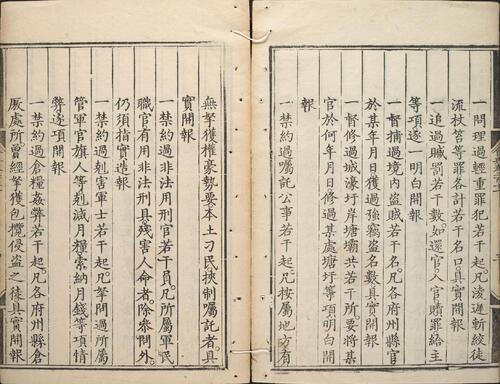 一問理過輕重罪犯若干起凡淩遲斬絞徒
流杖笞等罪各計若干名口具實開報
一追過贓罰若干數如還官入官贖罪給主
等項逐一明白開報
一督捕過境內盜賊若干起凡各府州縣官
於某年月日獲過強竊盜名數具實開報
一督修過城濠圩岸塘壩共若干所要將某
官於何年月日修過某處塘圩等項明白開
報
一禁約過囑託公事若干起凡按屬地方有
無拏獲權豪勢要本土刁民挾制囑託者具
實開報
一禁約過非法用刑官若干員凡所屬軍民
職官有用非法刑具殘害人命者除參問外
仍須指實造報
一禁約過剋害軍士若干起凡拏問過所屬
管軍官旗人等剋減月糧索納月錢等項情
弊逐項開報
一禁約過倉糧姦弊若干起凡各府州縣倉
厫處所曾經拏獲包攬侵盜之徒具實開報